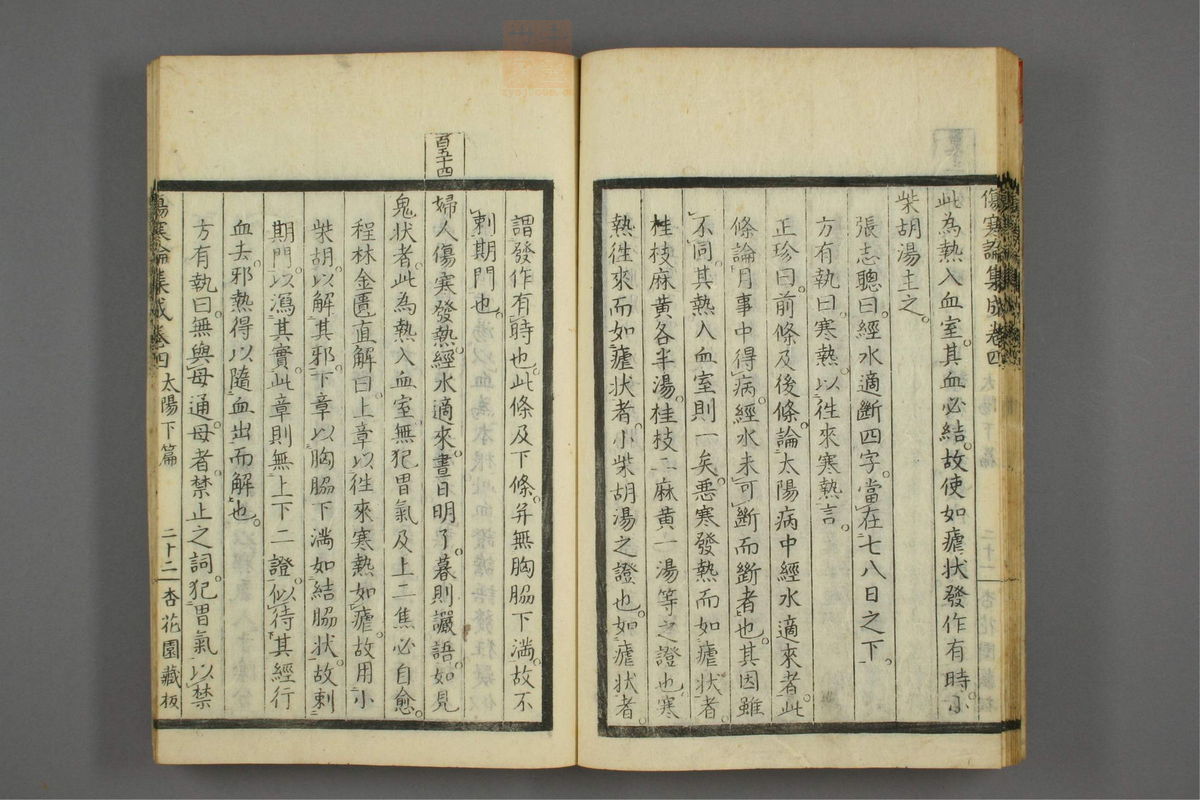 傷寒論集成卷四
此為熱入血室其血必結故使如瘧狀發作有時小
柴胡湯主之
張志聰曰經水適斷四字當在七八日之下
方有執曰寒熱以徃來寒熱言
正珍曰前條及後條論太陽病中經水適來者此
條論月事中得病經水未可斷而斷者也其因雖
不同其熱入血室則一矣惡寒發熱而如瘧狀者
桂枝麻黃各半湯桂枝二麻黃一湯等之證也寒
熱徃來而如瘧狀者小柴胡湯之證也如瘧狀者
百五十四
謂發作有時也此條及下條并無胸脇下滿故不
刺期門也
婦人傷寒發熱經水適來晝日明了暮則讝語如見
鬼狀者此為熱入血室無犯胃氣及上二焦必自愈
程林金匱直解曰上章以徃來寒熱如瘧故用小
柴胡以解其邪下章以胸脇下滿如結胸狀故刺
期門以瀉其實此章則無上下二證似待其經行
血去邪熱得以隨血出而解也
方有執曰無與毋通毋者禁止之詞犯胃氣以禁
傷寒論集成卷四 太陽下篇 二十二 杏花園藏板